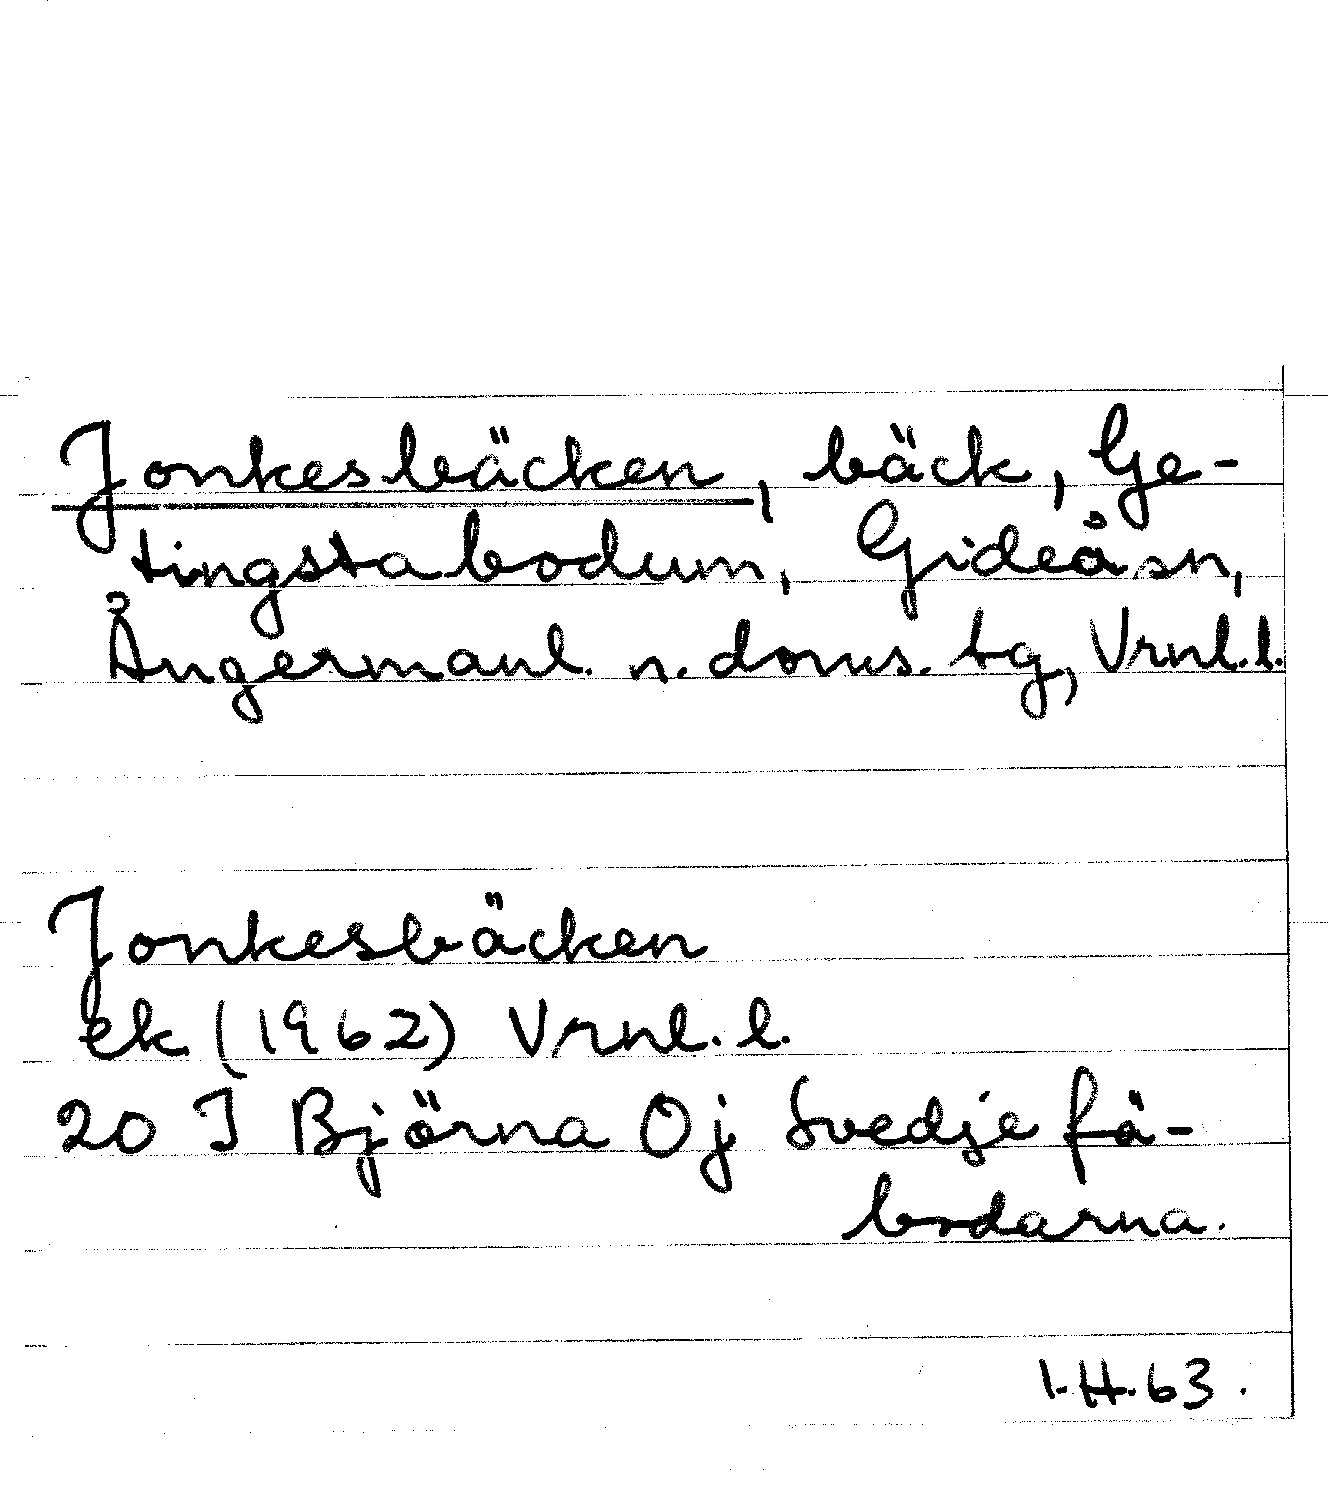 Jonkesbäcken, bäck, Ge-
tingstabodum, Gideåsn,
Ångermanl. n. doms. tg, Vrnl.l.
Jonkesbäcken
ek (1962) Vrnl.l.
20 I Björna Oj Svedje fä-
bodarna.
I.H.63.